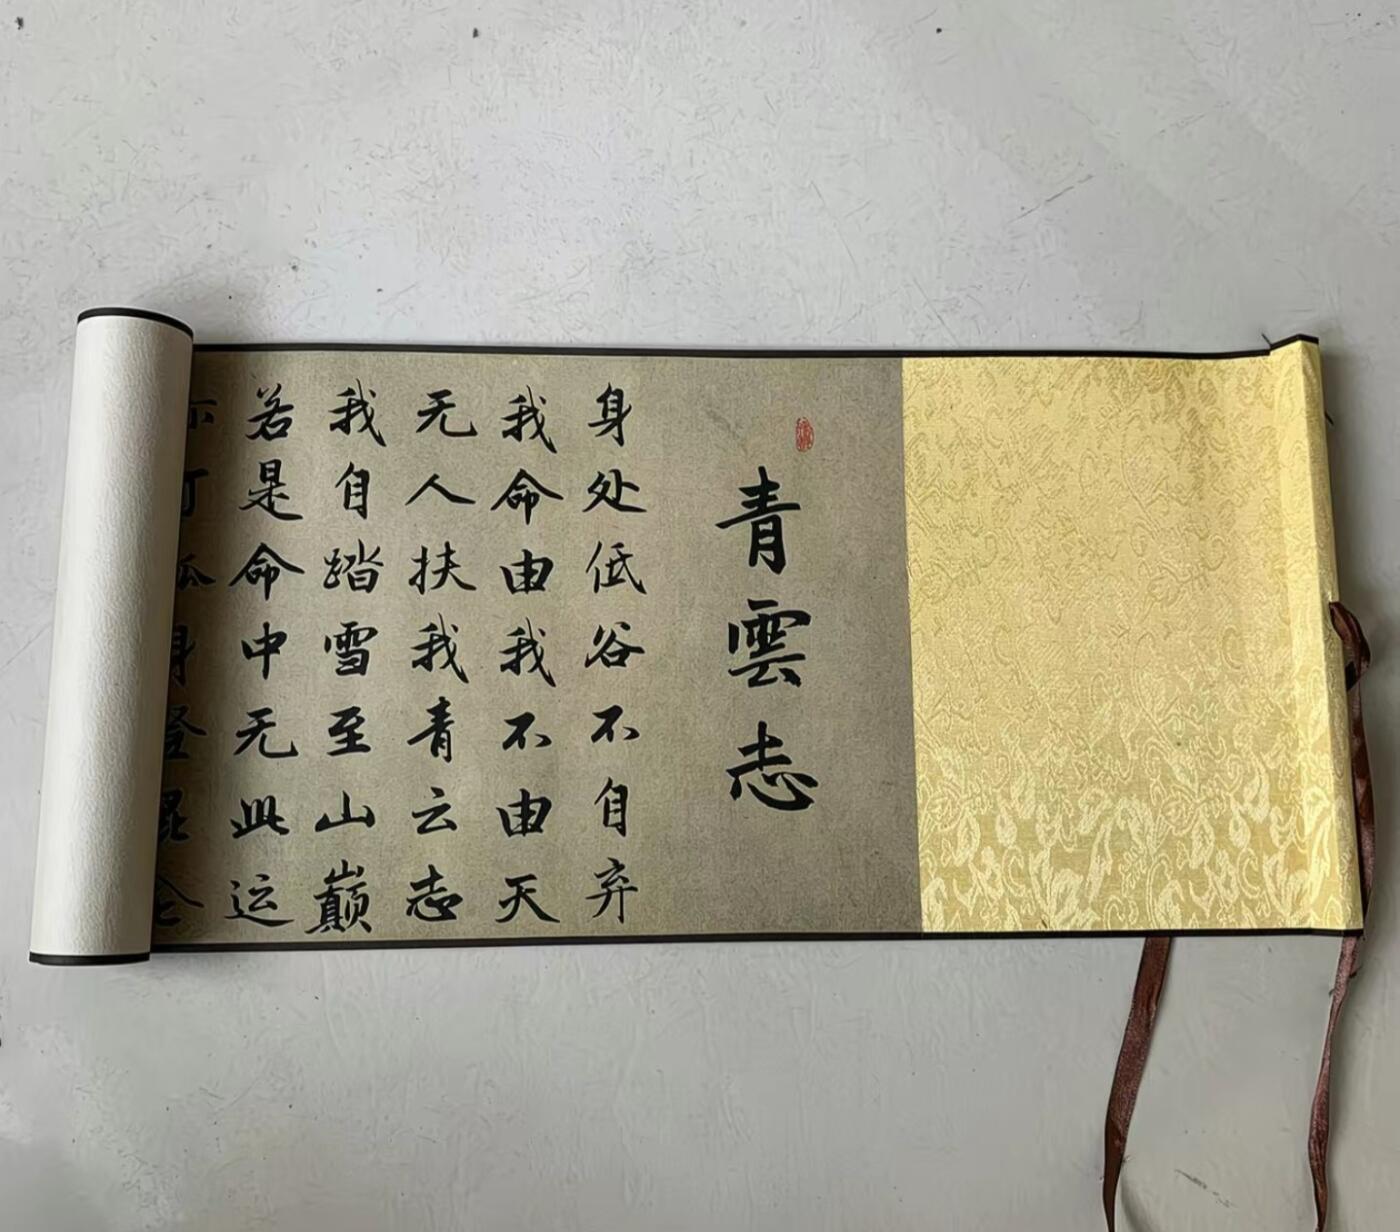 青雲志
身处低谷不自弃
我命由我不由天
无人扶我青云志
我自踏雪至山巅
若是命中无此运
亦可孤身登昆仑